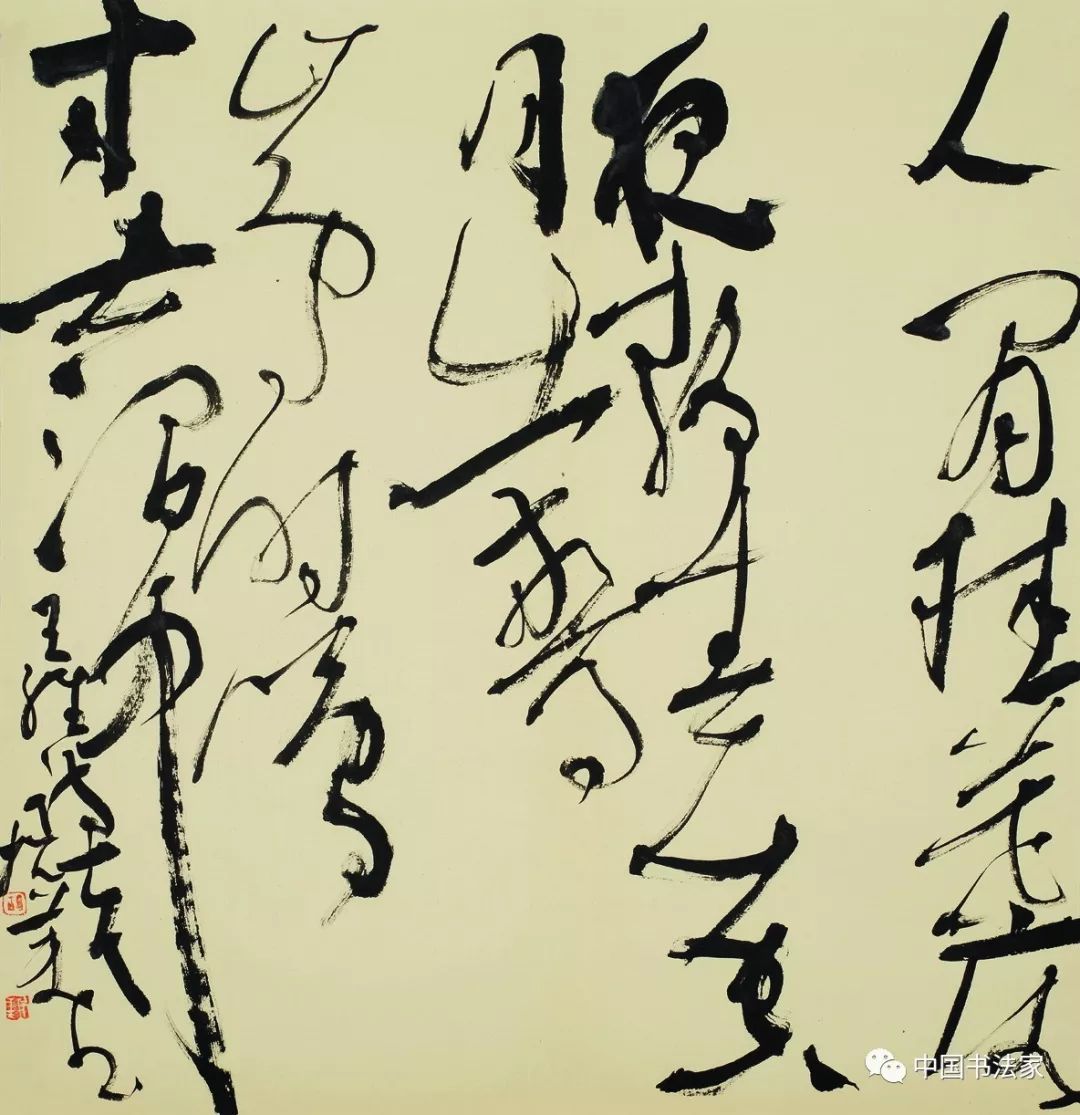 人閒桂花落
夜静春山空
月出驚
山鳥時鳴
春澗中
王維詩
书
中国书法家